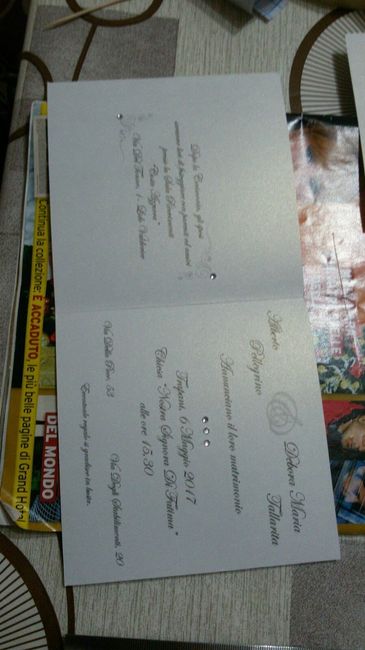 Alberto
Pellegrino
Debora Maria
Tallarita
Annunciano il loro matrimonio
Trapani, 6 Maggio 2017
Chiesa "Nostra Signora Di Fatima"
alle ore 15,30
Via Della Pace, 53
Via Degli Stabilimenti, 20
Eventuale regalo si gradisce in busta.
Dopo la Cerimonia, gli sposi
saranno lieti di festeggiare con parenti ed amici
presso la Sala Ricevimenti
Continua la collezione: È ACCADUTO,
le più belle pagine di Grand Hotel
DEL MONDO